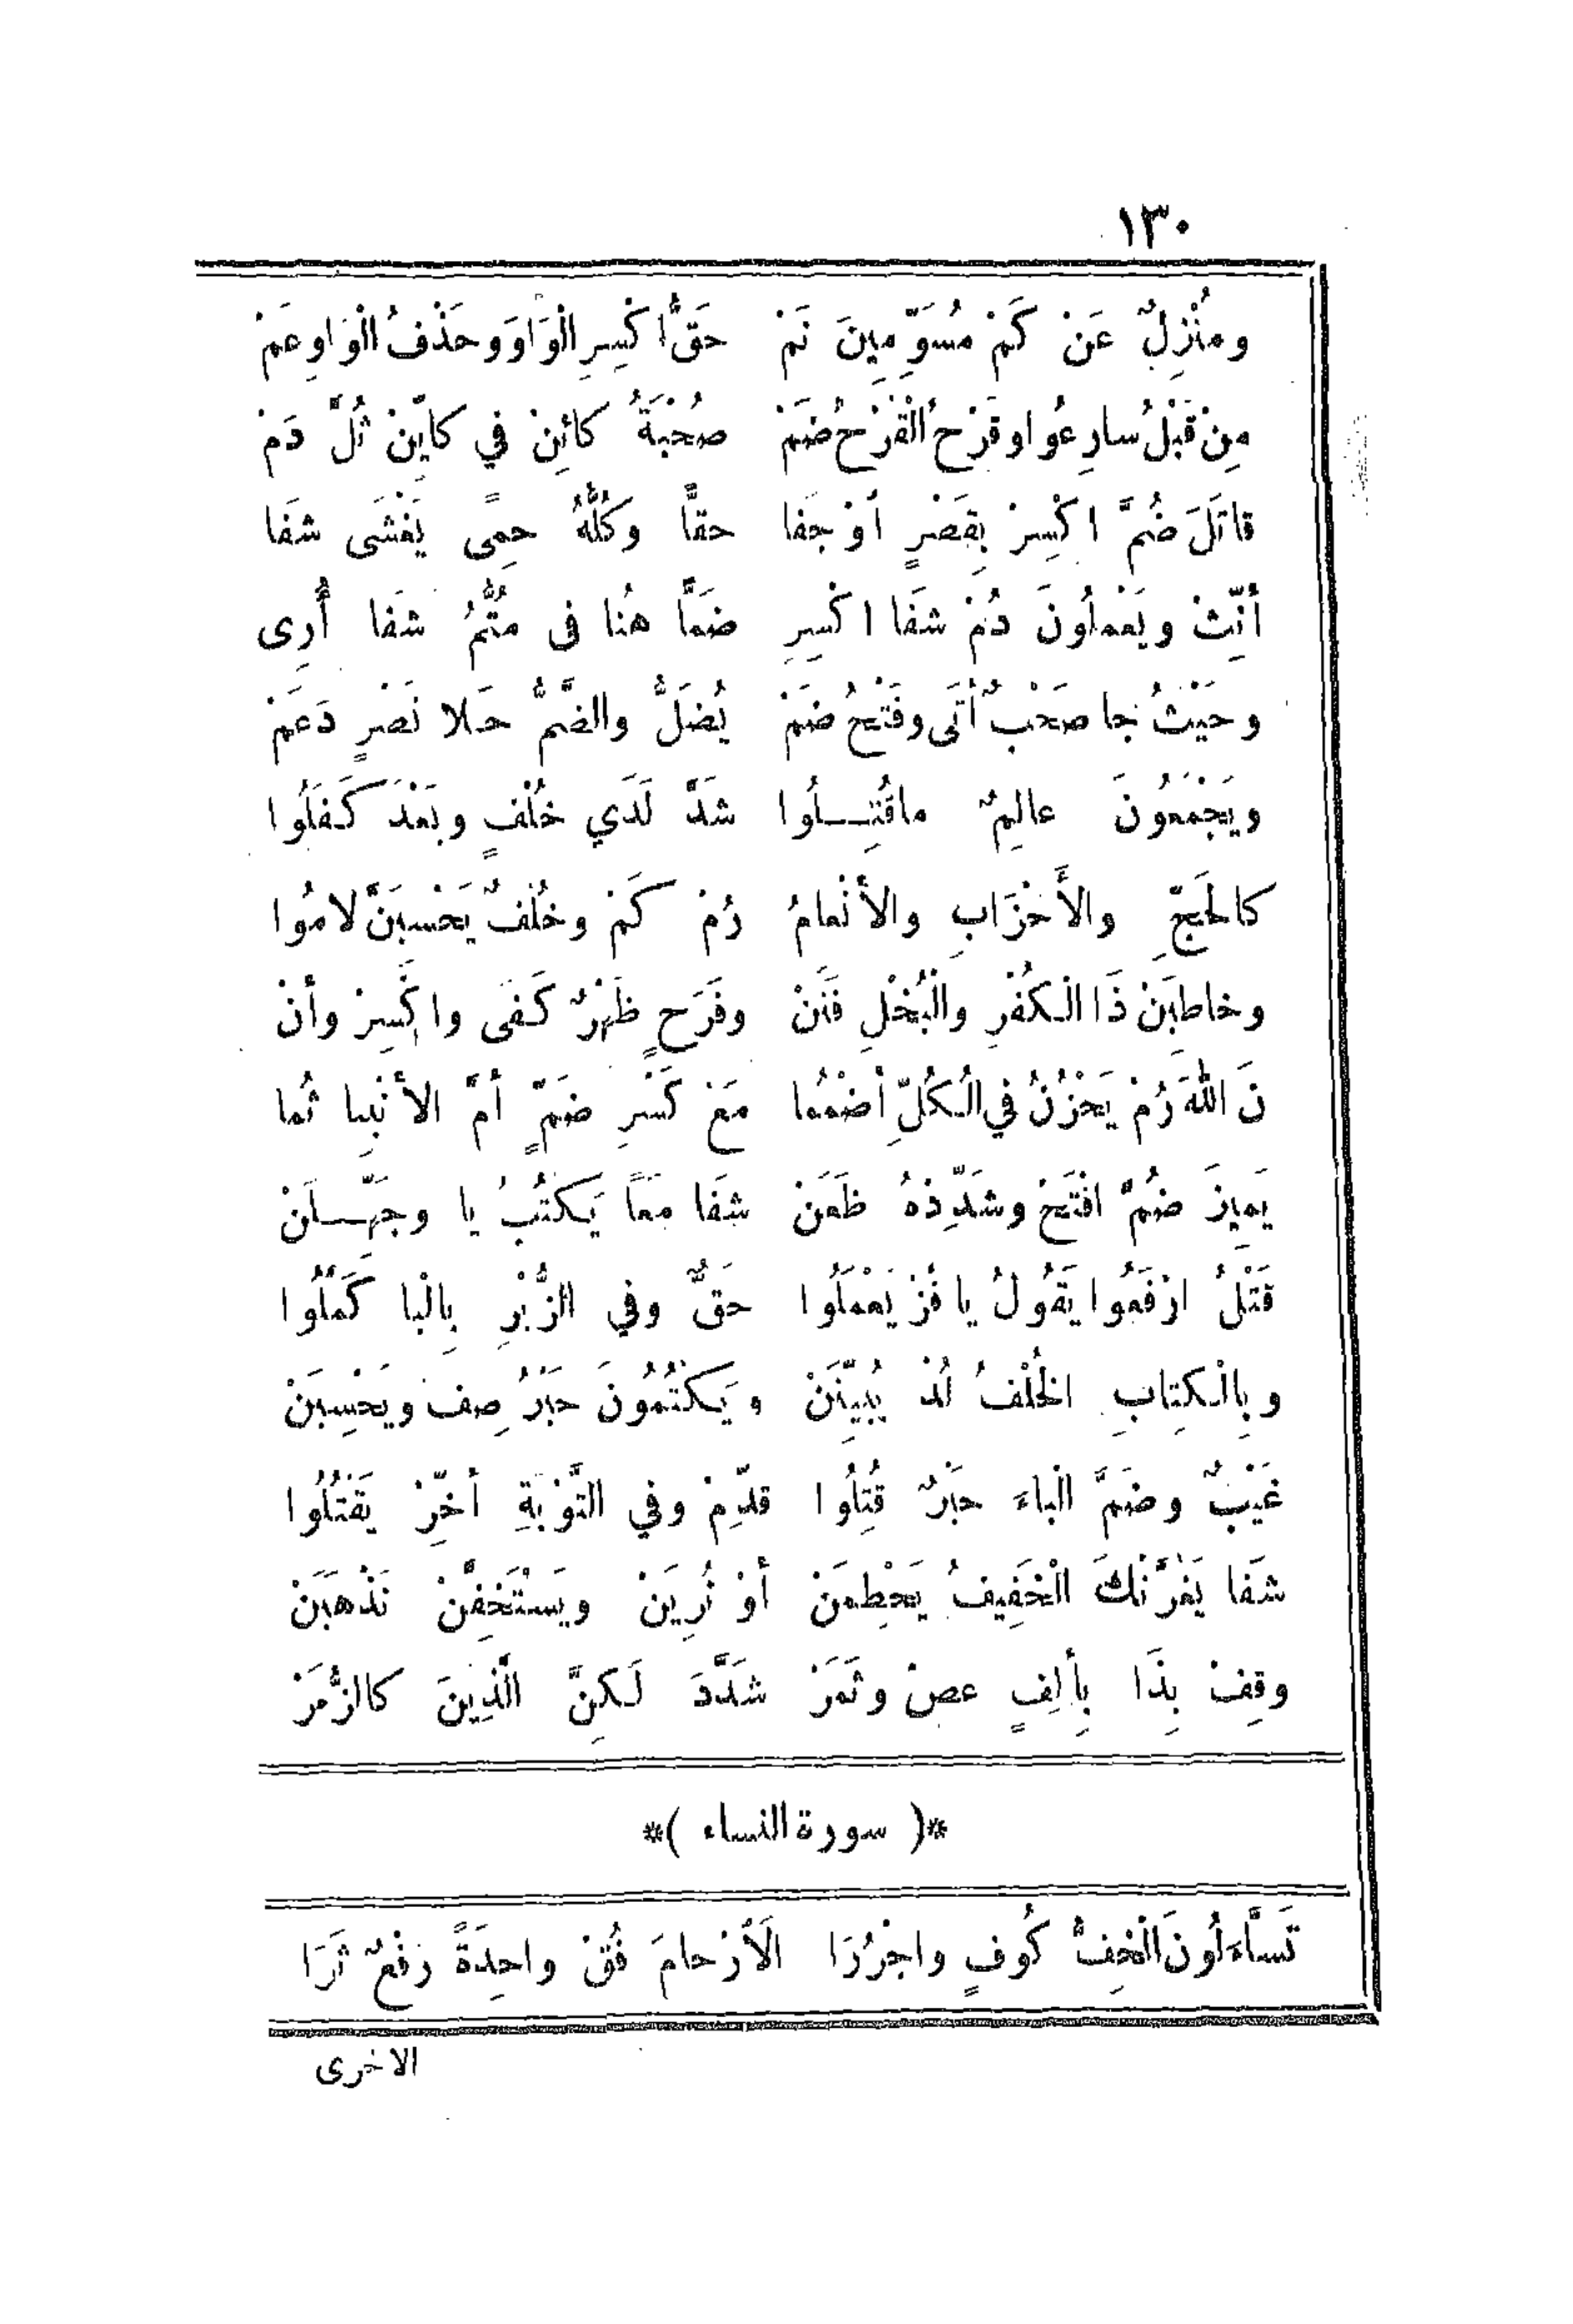 ١٣٠
ومُنْزِلٌ عَنْ كَمْ مُسَوِّمِينَ نَمْ حَقٌّ اكْسِرِ الْوَاوَ وحَذْفُ الْوَاوِ عَمْ
مِنْ قَبْلُ سارِعُوا وقَرْحُ الْقَرْحُ ضَمْ صُحْبَةُ كائِنْ في كايِّنْ ثُلَّ دَمْ
قاتَلَ ضُمَّ اكْسِرْ بِقَصْرٍ أَوْ جَفَا حقًّا وكُلُّهُ حِمًى يَغْشَى شفَا
أنِّثْ ويَعْملُونَ دُمْ شفَا اكْسِرِ ضَمًّا هُنا فى مُتُّمُ شفَا أُرِى
وحَيْثُ جا صَحْبٌ أتَى وفَتْحُ ضَمْ يُضَلُّ والضَّمُّ حَلا نَصْرٍ دَعَمْ
ويَجْمَعُونَ عالِمٌ ماقُتِلُوا شدَّ لَدَي خُلْفٍ وبَعْدَ كَفَلُوا
كالحَجِّ والأَحْزَابِ والأنْعامُ دُمْ كَمْ وخُلْفٌ يَحْسبَنَّ لامُوا
وخاطِبَنْ ذَا الْكُفْرِ والْبُخْلِ فَنَنْ وفَرَحٍ ظَهْرٌ كَفَى واكْسِرْ وأنْ
نَ اللهَ رُمْ يَحْزُنُ في الْكُلِّ أُضْمُمَا مَعْ كَسْرِ ضَمٍّ أمَّ الأنْبِيا ثُما
يَمِيزَ ضُمَّ افْتَحْ وشَدِّدْهُ ظَعَنْ شفَا مَعًا يَكتُبُ يا وجَهِّلَنْ
قَتْلُ ارْفَعُوا يَقُولُ يا فُزْ يَعْمَلُوا حَقٌّ وفي الزُّبْرِ بِالْبا كَمَّلُوا
وبِالْكِتابِ الخُلْفُ لُذْ يُبَيِّنَنْ ويَكتُمُونَ حَبْرُ صِفْ ويَحْسِبَنْ
غَيْبٌ وضَمَّ الْباءَ حَبْرٌ قُتِلُوا قدِّمْ وفي التَّوْبَةِ أخِّرْ يَقْتُلُوا
شفَا يَغُرَّنْكَ الْخَفِيفُ يَحْطِمَنْ أوْ نُرِيَنْ ويَسْتَخِفَّنْ نَذْهَبَنْ
وقِفْ بِذَا بِأَلِفٍ غصْ وثَمَرْ شدَّدَ لَكِنَّ الَّذِينَ كالزُّمَرْ
*( سورة النساء )*
تَسَّاءَلُونَ الْخِفُّ كُوفٍ واجْرُرَا الَاَرْحامَ فُقْ واحِدَةً رَفْعٌ ثَرَا
الاخرى